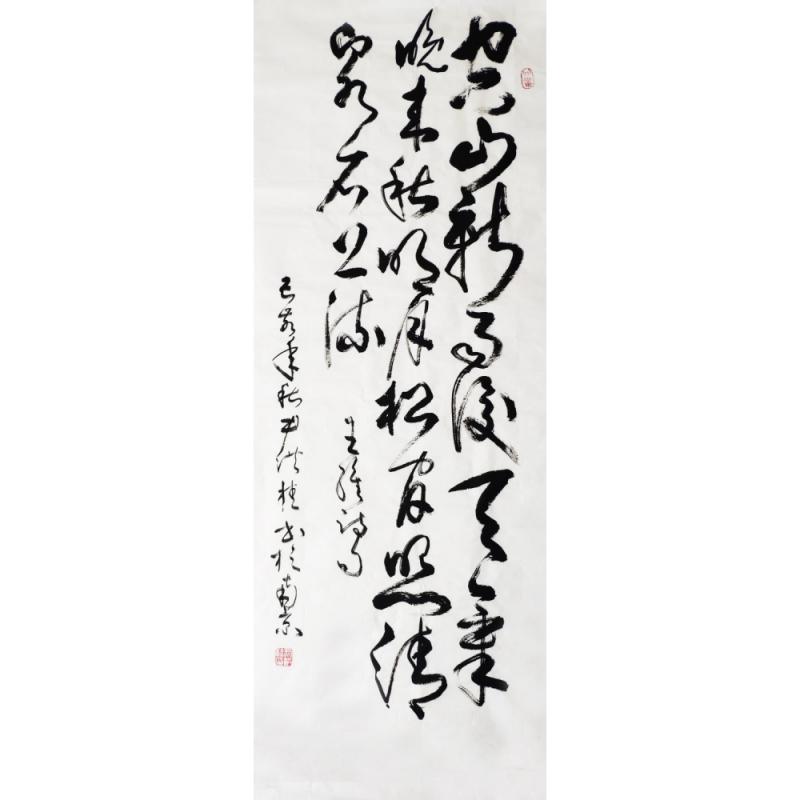 空山新雨後天氣
晚來秋明月松間照清
泉石上流
王維詩句
己亥年秋洪桂書於南京